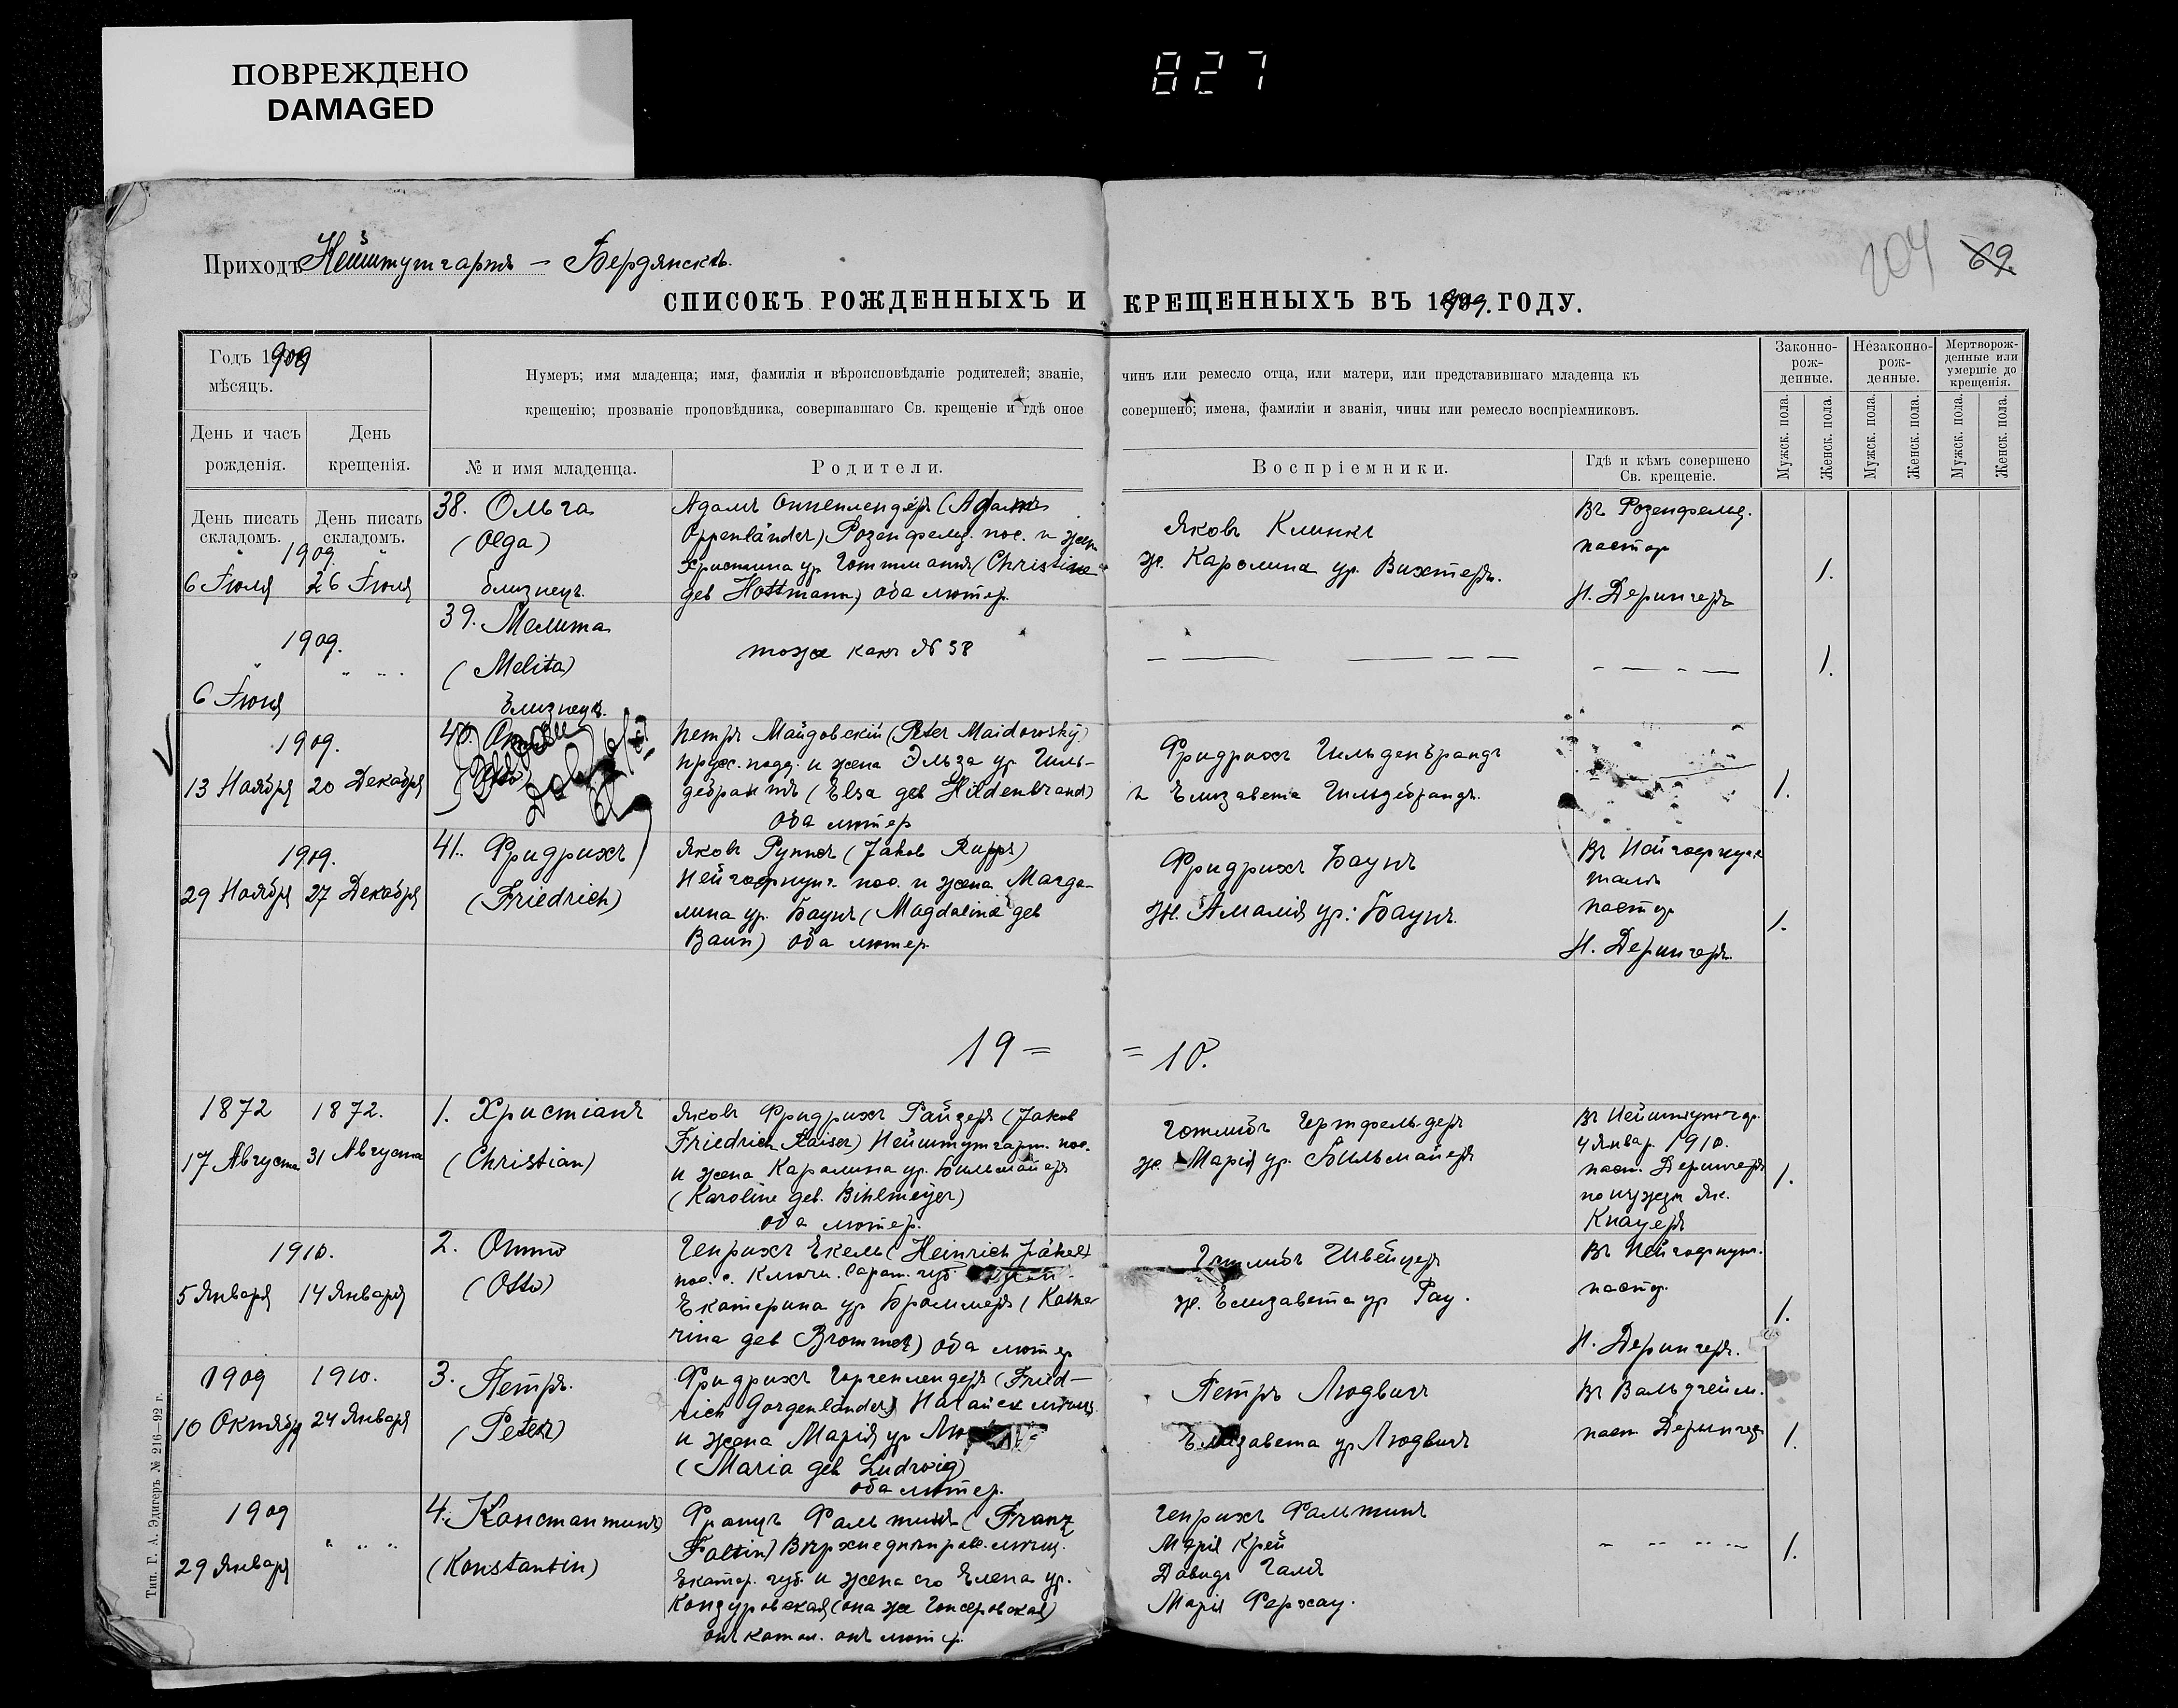 ПОВРЕЖДЕНО
DAMAGED
827
Приходъ Нейштутгартъ – Бердянскъ.
204 69.
СПИСОКЪ РОЖДЕННЫХЪ И КРЕЩЕННЫХЪ ВЪ 1909. ГОДУ.
Годъ 1909
мѣсяцъ.
День и часъ рожденія.
День крещенія.
Нумеръ; имя младенца; имя, фамилія и вѣроисповѣданіе родителей; званіе, чинъ или ремесло отца, или матери, или представившаго младенца къ
крещенію; прозваніе проповѣдника, совершавшаго Св. крещеніе и гдѣ оное совершено; имена, фамиліи и званія, чины или ремесло воспріемниковъ.
№ и имя младенца.
Родители.
Воспріемники.
Гдѣ и кѣмъ совершено
Св. крещеніе.
Законно-
рож-
денные.
Незаконно-
рож-
денные.
Мертворож-
денные или
умершіе до
крещенія.
Мужск. пола.
Женск. пола.
Мужск. пола.
Женск. пола.
Мужск. пола.
Женск. пола.
День писать
складомъ.
День писать
складомъ.
1909.
6 Іюля
26 Іюля
38. Ольга
(Olga)
близнецъ.
Адамъ Оппенлендеръ (Adam
Oppenländer) Розенфельд. пос. и жена
Христина ур. Готтманъ (Christine
geb Hottmann) оба лютер.
Яковъ Клинкъ
ж. Каролина ур. Вихтеръ.
Въ Розенфельд.
пастор
И. Дерингеръ
1.
1909.
6 Іюля
39. Мелита
(Melita)
близнецъ.
тоже какъ № 38
1.
1909.
13 Ноября
20 Декабря
40.
Петръ Майдовскій (Peter Maidowsky)
прусс. подд. и жена Эльза ур. Гиль-
дебрантъ (Elsa geb Hildenbrand)
оба лютер
Фридрихъ Гильденбрандъ
и Елизавета Гильдебрандъ.
1.
1909.
29 Ноября
27 Декабря
41. Фридрихъ
(Friedrich)
Яковъ Руппъ (Jakob Rupp)
Нейгофнунг. пос. и жена Магда-
лина ур. Баунъ (Magdalina geb
Baun) оба лютер.
Фридрихъ Баунъ
ж. Амалія ур: Баунъ.
Въ Нейгофнунг
пастор
И. Дерингеръ.
1.
19 = = 10.
1872
17 Августа
1872.
31 Августа
1. Христіанъ
(Christian)
Яковъ Фридрихъ Гайзеръ (Jakob
Friedrich Kaiser) Нейштутгарт. пос.
и жена Каролина ур. Бильмайеръ
(Karoline geb. Bihlmeyer)
оба лютер.
Готлибъ Гертфельдеръ
ж. Марія ур. Бильмайеръ
Въ Нейштутгар.
4 Январ. 1910.
паст. Дерингеръ
по нужди Як.
Кнауеръ
1.
1910.
5 Января
14 Января
2. Отто
(Otto)
Генрихъ Екель (Heinrich Jäkel)
пос. с. Ключи. Сарат. губ.
Екатерина ур Броммеръ (Kathe
rina geb Brommer) оба лютер
Готлибъ Швейцеръ
ж. Елизавета ур Рау.
Въ Нейгофнунг.
пастор.
И. Дерингеръ.
1.
1909
10 Октября
1910.
24 Января
3. Петръ.
(Peter)
Фридрихъ Горгенлендеръ (Fried–
rich Gorgenländer) Ногайск мѣщ.
и жена Марія ур
(Maria geb Ludwig)
оба лютер.
Петръ Людвигъ
Елизавета ур Людвигъ
Въ Вальдгейм.
паст Дерингеръ
1.
1909
29 Января
4. Константинъ
(Konstantin)
Францъ Фальтинъ (Franz
Faltin) Верхнеднѣпровс. мѣщ.
Екатер. губ. и жена его Елена ур.
Кондуровская (она же Гонсеровская)
онъ катол. она лютер.
Генрихъ Фальтинъ
Марія Крей
Давидъ Галъ
Марія Ферхау.
1.
Тип. Г. А. Эдигеръ № 216—92 г.